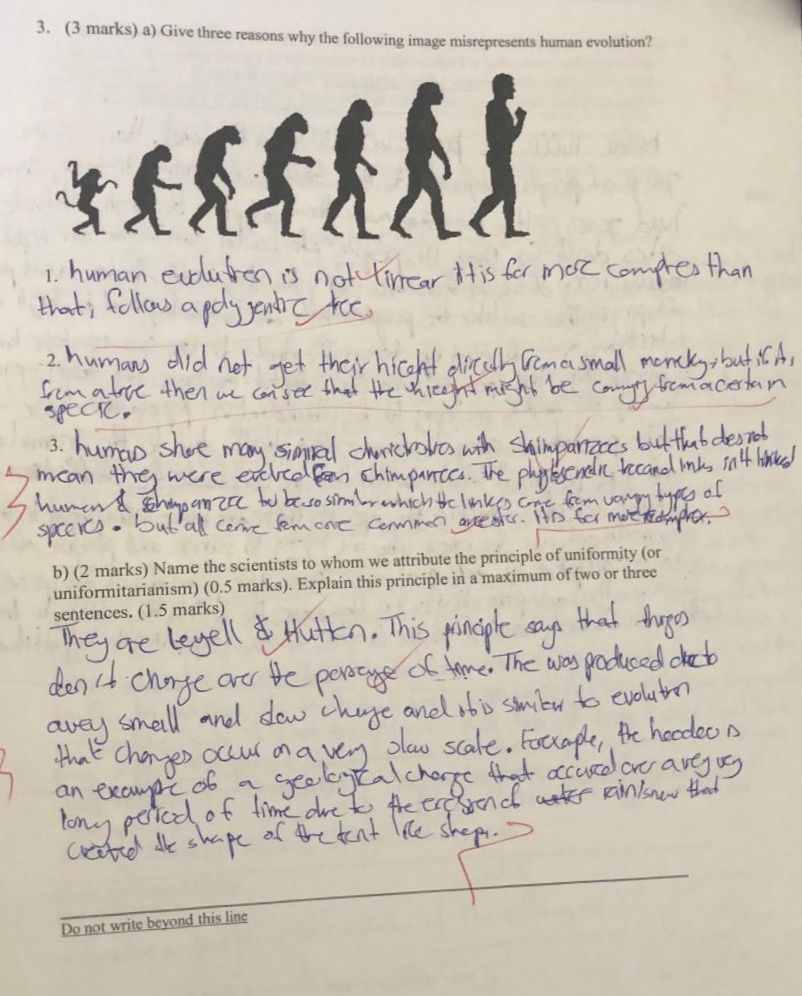 3. (3 marks) a) Give three reasons why the following image misrepresents human evolution?
1. human evolution is not linear it is far more complex than
that, follows a polygentic tree.
2. humans did not get their hieght directly from a small moncky, but if it
from a tree then we can see that the hieght might be coming from a certain
specie.
3. humans share many similar with shimpanzees but that does not
mean they were evolved from chimpanzees. The and links in
human & shimpanzee to be so similar which the links come from varyng types of
species. but all come from one common ancestor. It is far more complex.
b) (2 marks) Name the scientists to whom we attribute the principle of uniformity (or
uniformitarianism) (0.5 marks). Explain this principle in a maximum of two or three
sentences. (1.5 marks)
They are Leyell & Hutton. This principle says that things
don't change over the passage of time. The was produced due to
a vey small and slow change and it is similar to evolution
that changes occur on a very slow scale. For example, the hoodoo is
an example of a geological change that occured over a vey
long period of time due to the erosion of rain/snow that
created the shape of the tent like shape.
Do not write beyond this line